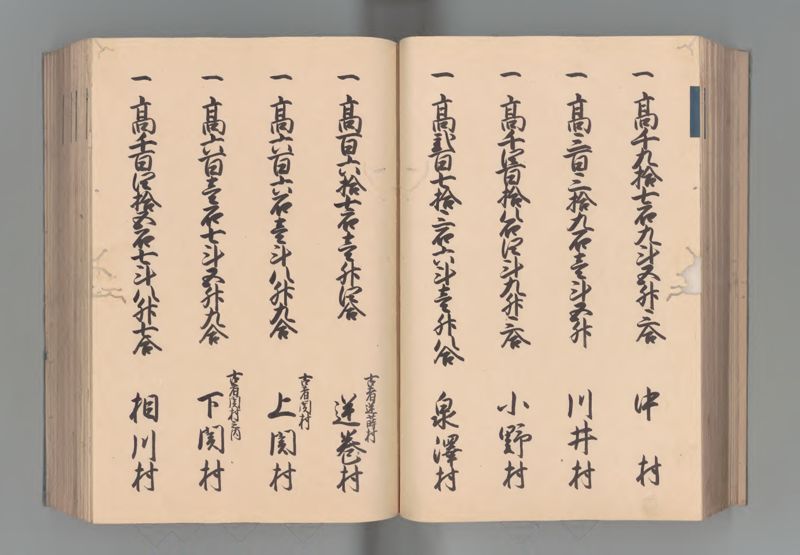 一 高千九拾七石九斗五升三合 中村
一 高三百三拾九石壱斗五升 川井村
一 高千四百拾八石四斗九升三合 小野村
一 高弐百七拾三石六斗壱升八合 泉澤村
一 高百六拾七石壱升四合 古者逆蒔村 逆巻村
一 高六百六石壱斗八升九合 古者関村 上関村
一 高六百壱石七斗五升九合 古者関村之内 下関村
一 高千百四拾五石七斗八升七合 相川村